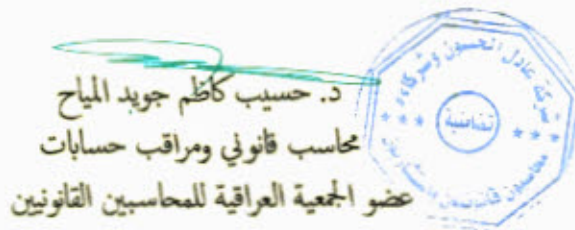 د. حسيب كاظم جويد المياح
محاسب قانوني ومراقب حسابات
عضو الجمعية العراقية للمحاسبين القانونيين
شركة عادل الحسون وشركاءه
تضامنية
محاسبون قانونيون